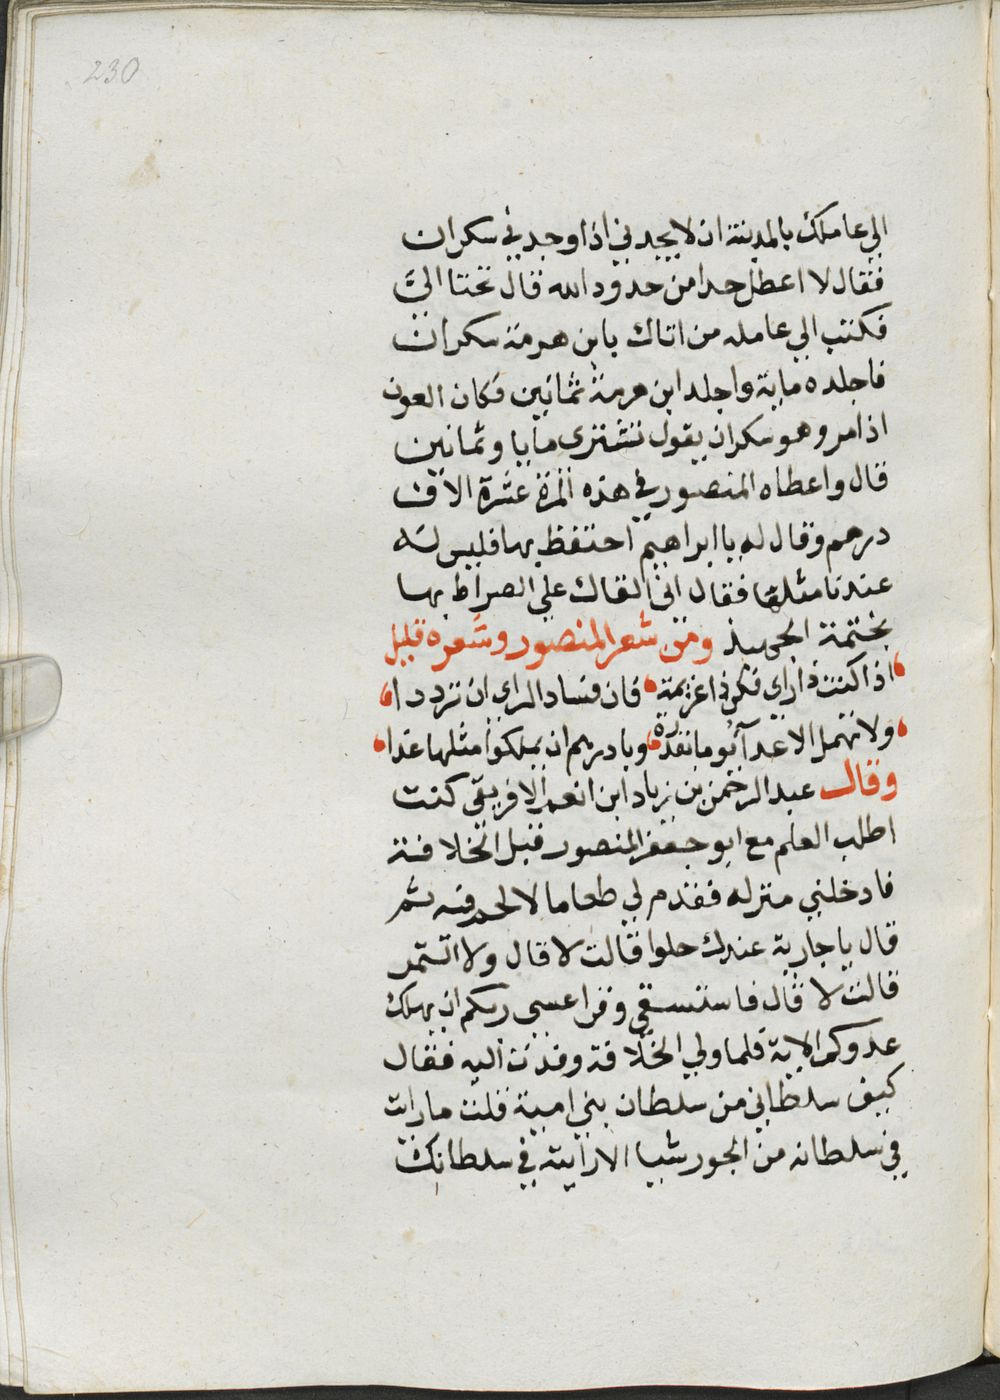 230
الي عاملك بالمدينة ان لا يجدني اذا وجدني سكران
فقال لا اعطل حدا من حدود الله قال تحتا اليَّ
فكتب الي عامله من اتاك بابن هرمة سكران
فاجلده ماية واجلد ابن هرمة ثمانين فكان العون
اذا مر وهو سكران يقول نشتري مايا وثمانين
قال واعطاه المنصور في هذه المرة عشرة الاف
درهم وقال له يا ابراهيم احتفظ بها فليس له
عندنا مثلها فقال اني القاك علي الصراط بها
بختمة الجهبذ ومن شعر المنصور وشعره قليل
اذا كنت ذا راي فكن ذا عزيمة فان فساد الراي ان تترددا
ولا تمهل الاعدآ يوما بقدرة وبادرهم ان يملكوا مثلها غدا
وقال عبد الرحمن بن زياد ابن انعم الافريقي كنت
اطلب العلم مع ابو جعفر المنصور قبل الخلافة
فادخلني منزله فقدم لي طعاما لا لحم فيه ثم
قال يا جارية عندك حلوا قالت لا قال ولا التمر
قالت لا قال فاستسقي وقرا عسي ربكم ان يهلك
عدوكم الاية فلما ولي الخلافة وفدت اليه فقال
كيف سلطاني من سلطان بني امية قلت ما رات
في سلطانه من الجور شيا الا رايته في سلطانك